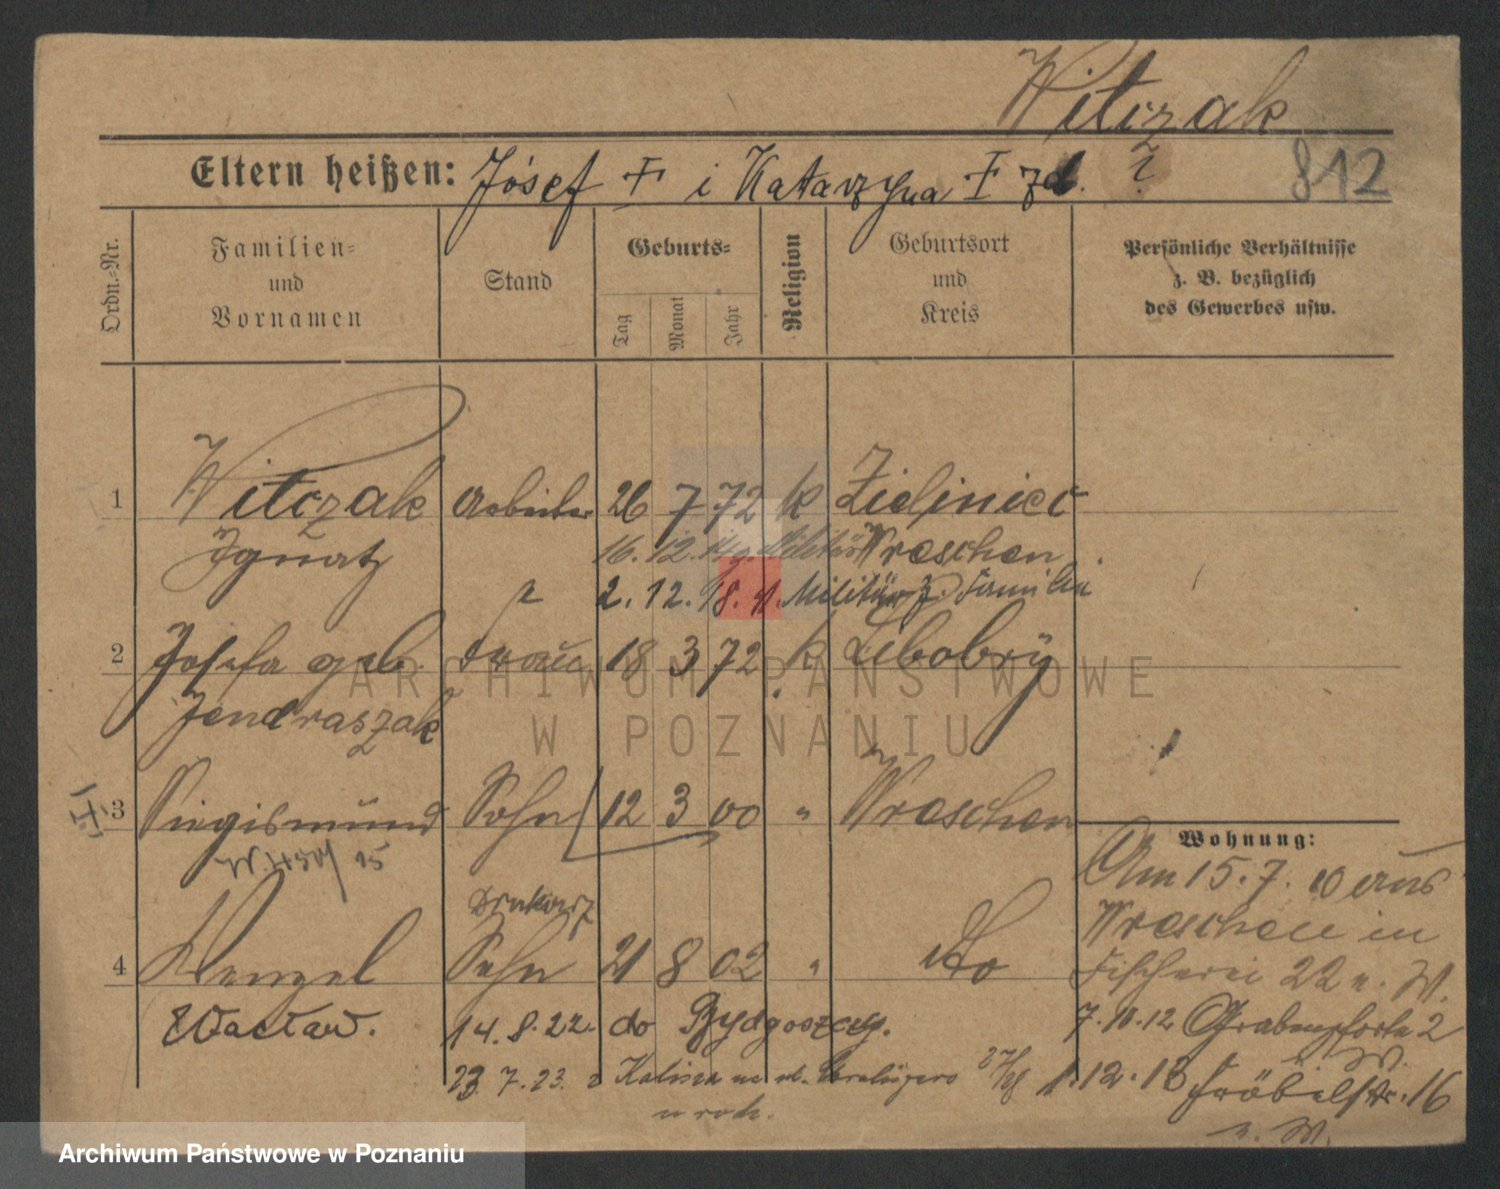 Witczak
Eltern heißen: Józef † i Katarzyna † zd. ?
812
Ordn.-Nr.
Familien-
und
Vornamen
Stand
Geburts-
Tag
Monat
Jahr
Religion
Geburtsort
und
Kreis
Persönliche Verhältnisse
z. B. bezüglich
des Gewerbes usw.
1 Witczak Arbeiter 26 7 72 k Zieliniec
Ignatz 16. 12. Militär Wreschen
2. 12. 18. v. Militär z. Familie
2 Josefa geb. Frau 18 3 72 k Libobry
Jendraszak
3 Siegismund Sohn 12 3 00 " Wreschen
15
Drukarz
4 Wenzel Sohn 21 8 02 " do
Wacław. 14.8.22. do Bydgoszczy.
23.7.23. z Kalisza
Wohnung:
Am 15.7.10 aus
Wreschen in
Fischerei 22 n. W.
7.10.12 Grabenpforte 2
n. W.
1.12.18 Fröbelstr. 16
n. W.
ARCHIWUM PAŃSTWOWE
W POZNANIU
Archiwum Państwowe w Poznaniu